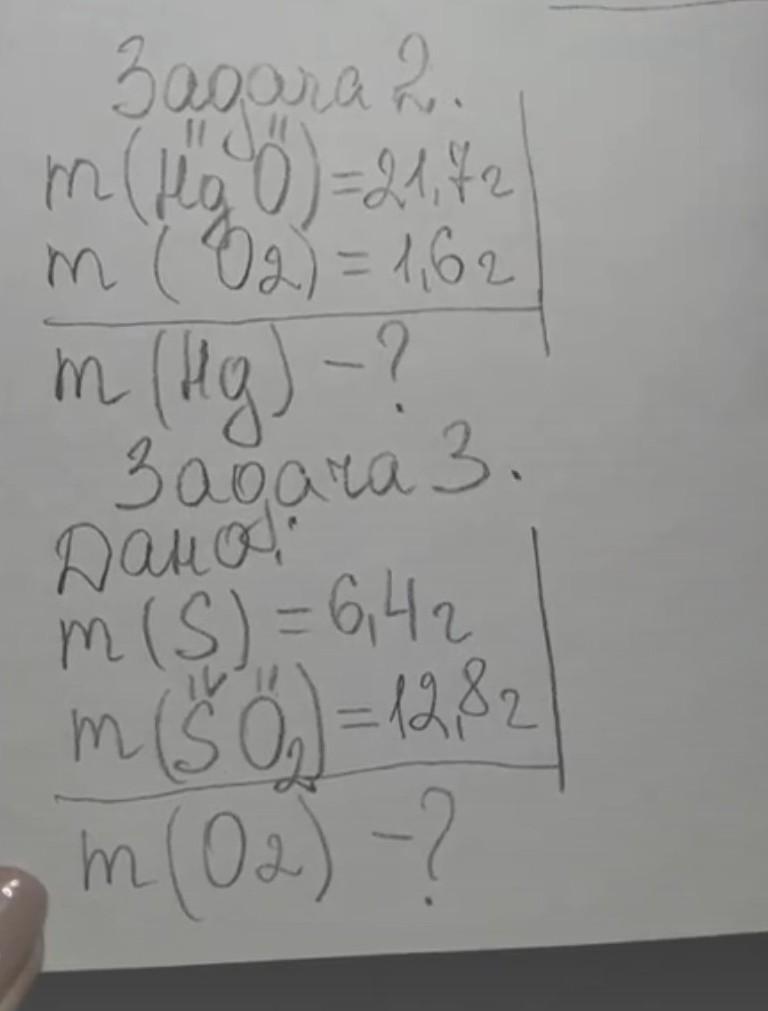 Задача 2.
II II
m(HgO)=21,7г
m(O2)=1,6г
m(Hg)-?
Задача 3.
Дано:
m(S)=6,4г
IV II
m(SO₂)=12,8г
m(O2)-?